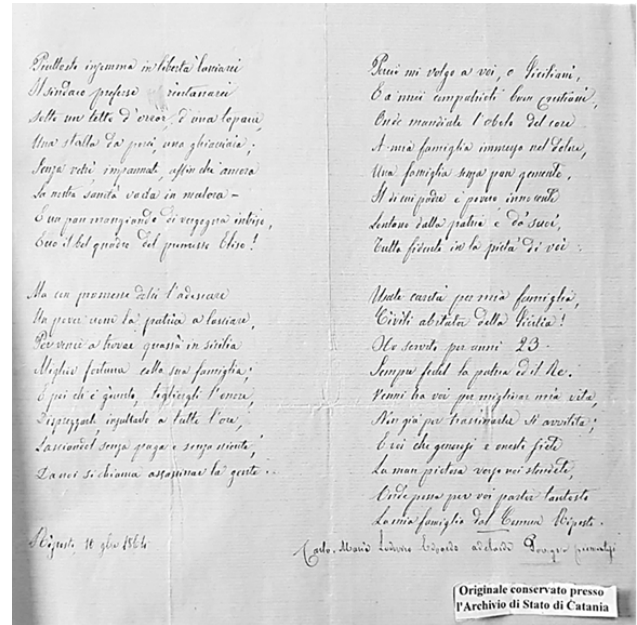 Piuttosto insomma in libertà lasciarci
Il sindaco preferse rintanarci
sotto un tetto d'orror, d'una topaia,
Una stalla da porci, una ghiacciaia;
Senza vetri, impannate, affin che ancora
La nostra sanità vada in malora –
E un pan mangiando di vergogna intriso,
Ecco il bel quadro del promesso Eliso!
Ma con promesse
Un pover uom la patria a lasciare,
Per venir a trovar quassù in sicilia
Miglior fortuna colla sua famiglia;
E poi ch'è giunto, togliergli l'onore,
Disprezzarlo, insultarlo a tutte l'ore,
Lasciandol senza paga e senza niente,
Da noi si chiama assassinar la gente..
Riposto 18 9bre 1864
Perciò mi volgo a voi, o Siciliani,
E a miei compatrioti buon cristiani,
Onde mandiate l'obolo del core
A mia famiglia immersa nel dolore,
Una famiglia senza pan gemente,
Il di cui padre è povero innocente
Lontano dalla patria e da' suoi,
Tutta fidente in la pietà di voi:
Usate carità per mia famiglia,
Civili abitator della Sicilia!
Ho servito per anni 23 –
Sempre fedel la patria ed il Re.
Venni tra voi per migliorar mia vita,
Non già per trascinarla sì avvilita;
E voi che generosi e onesti siete
La man pietosa verso noi stendete,
Onde possa per voi partir tantosto
La mia famiglia dal Comun Riposto.
Carlo, Maria Lodovico Edoardo Adelaide
Originale conservato presso
l'Archivio di Stato di Catania